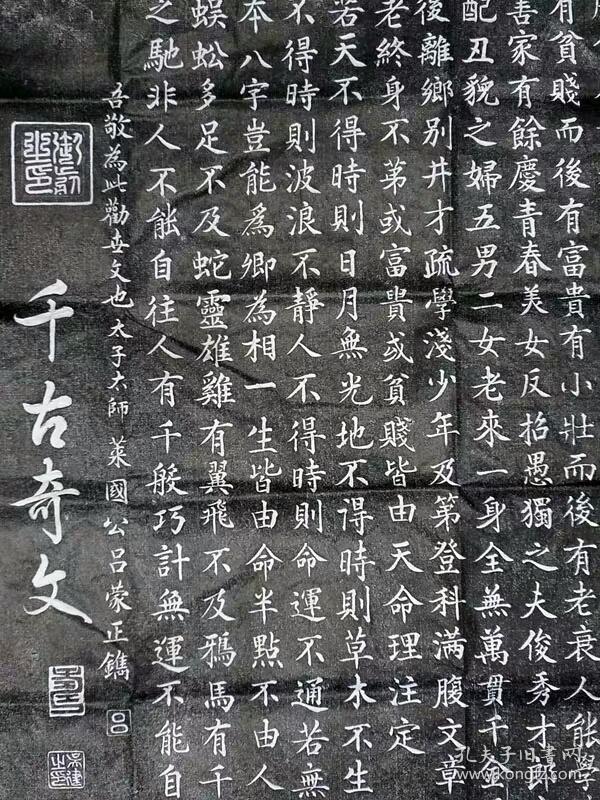 有貧賤而後有富貴有小壯而後有老衰人能學
善家有餘慶青春美女反招愚獨之夫俊秀才郎
配丑貌之婦五男二女老來一身全無萬貫千金
後離鄉別井才疏學淺少年及第登科滿腹文章
老終身不第或富貴或貧賤皆由天命理注定
若天不得時則日月無光地不得時則草木不生
不得時則波浪不靜人不得時則命運不通若無
本八字豈能爲卿為相一生皆由命半點不由人
蜈蚣多足不及蛇靈雄雞有翼飛不及鴉馬有千
之馳非人不能自往人有千般巧計無運不能自
吾敬為此勸世文也太子太師萊國公呂蒙正鐫
千古奇文
孔夫子旧书网
www.kongfz.com